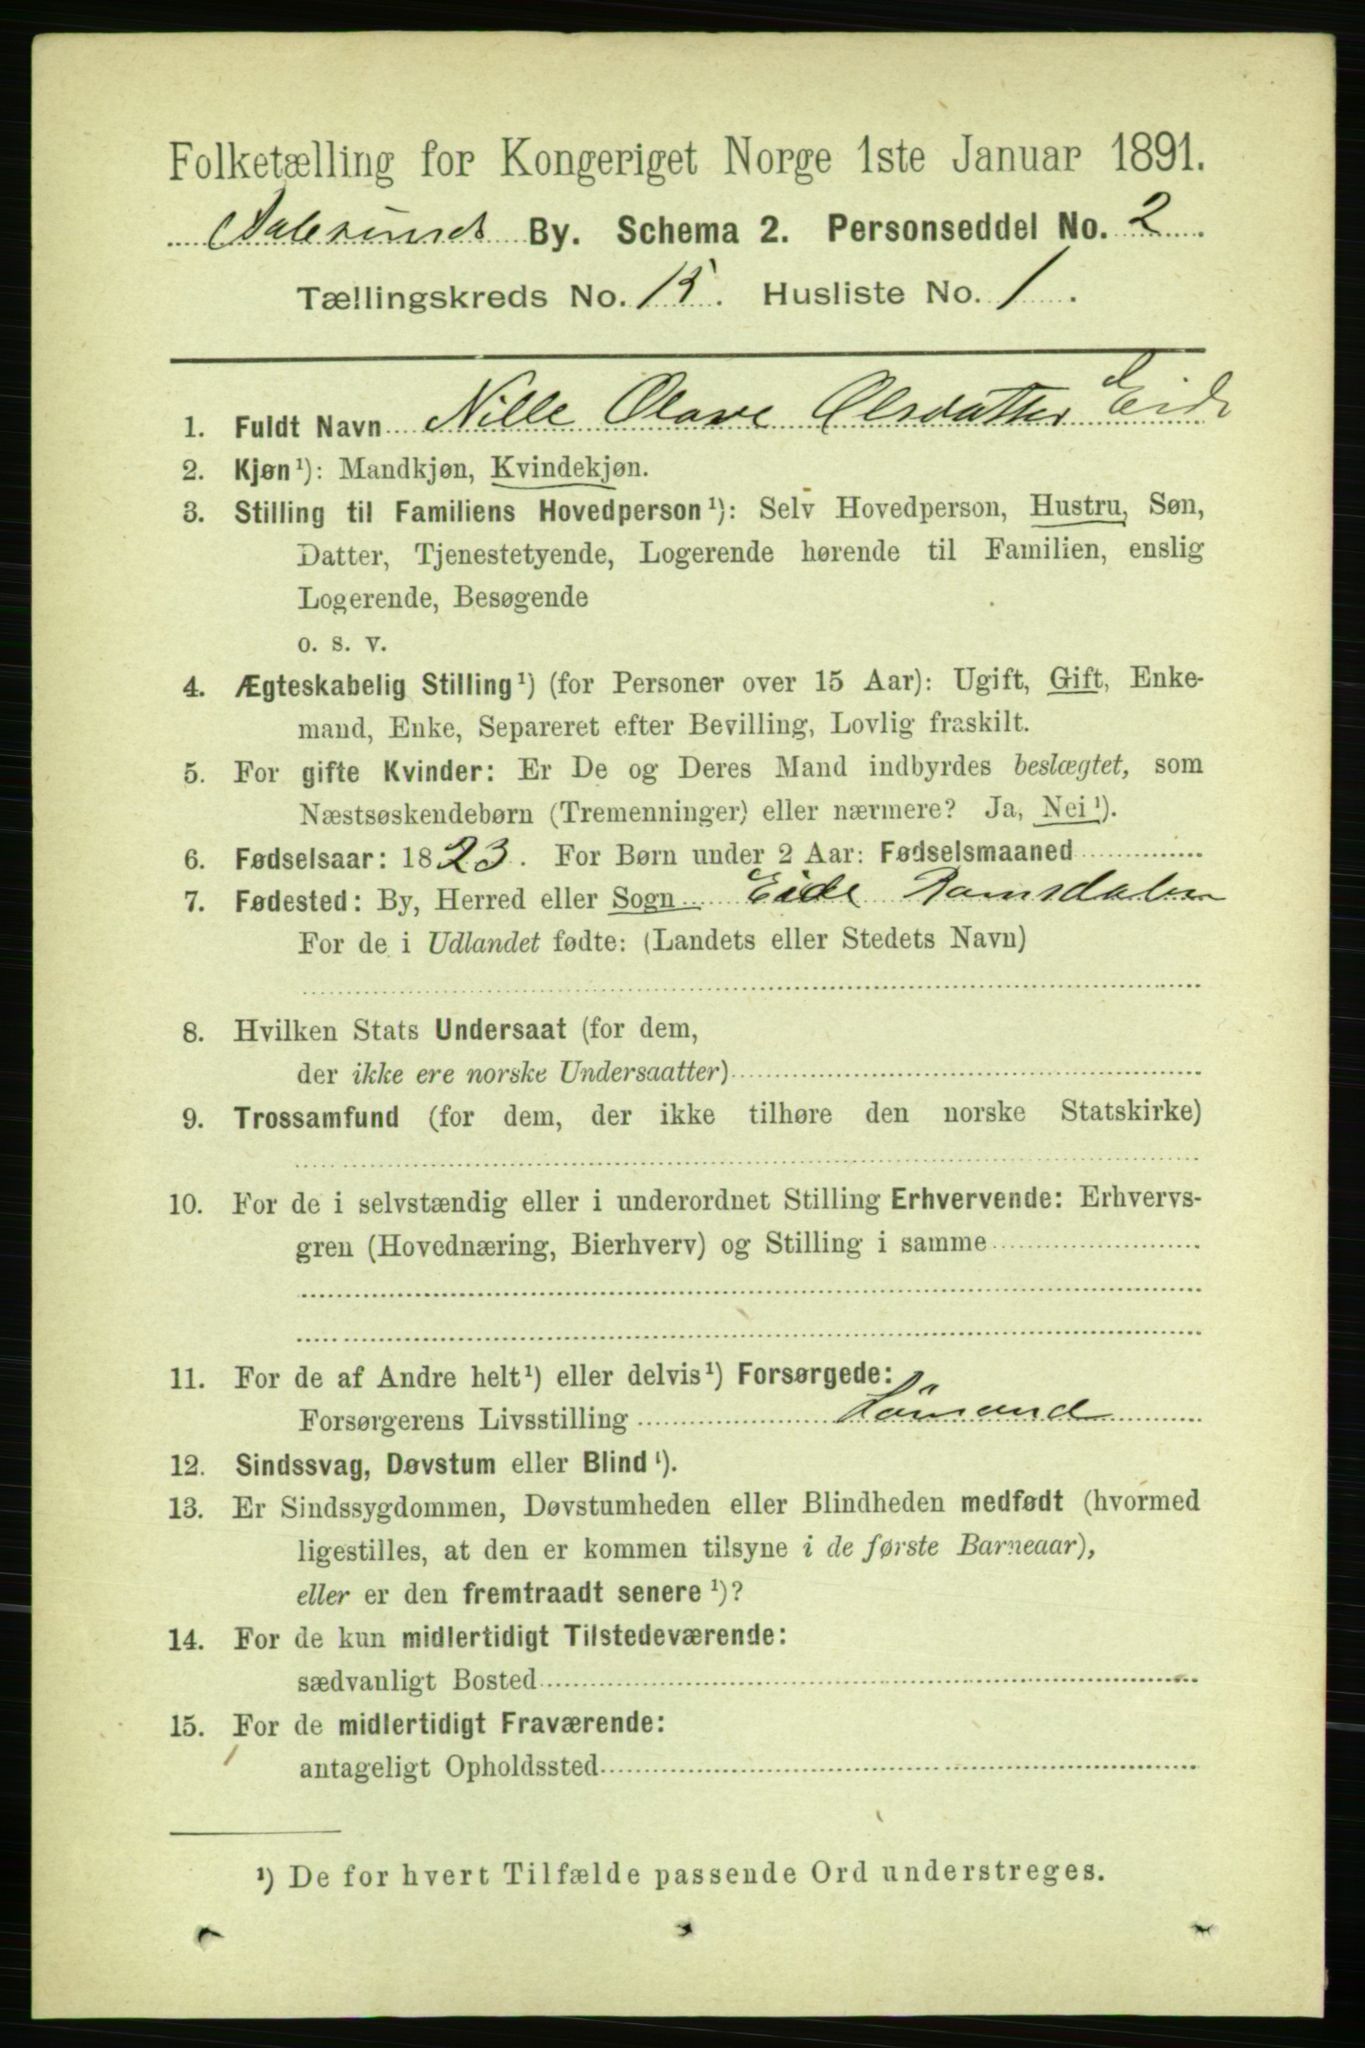 Folketælling for Kongeriget Norge 1ste Januar 1891.
Aalesunds By. Schema 2. Personseddel No. 2.
Tællingskreds No. 15. Husliste No. 1.
1. Fuldt Navn Nille Olave Olsdatter Eide
2. Kjøn¹): Mandkjøn, Kvindekjøn.
3. Stilling til Familiens Hovedperson¹): Selv Hovedperson, Hustru, Søn,
Datter, Tjenestetyende, Logerende hørende til Familien, enslig
Logerende, Besøgende
o. s. v.
4. Ægteskabelig Stilling¹) (for Personer over 15 Aar): Ugift, Gift, Enke-
mand, Enke, Separeret efter Bevilling, Lovlig fraskilt.
5. For gifte Kvinder: Er De og Deres Mand indbyrdes beslægtet, som
Næstsøskendebørn (Tremenninger) eller nærmere? Ja, Nei¹).
6. Fødselsaar: 1823. For Børn under 2 Aar: Fødselsmaaned
7. Fødested: By, Herred eller Sogn Eide Romsdalen
For de i Udlandet fødte: (Landets eller Stedets Navn)
8. Hvilken Stats Undersaat (for dem,
der ikke ere norske Undersaatter)
9. Trossamfund (for dem, der ikke tilhøre den norske Statskirke)
10. For de i selvstændig eller i underordnet Stilling Erhvervende: Erhvervs-
gren (Hovednæring, Bierhverv) og Stilling i samme
11. For de af Andre helt¹) eller delvis¹) Forsørgede:
Forsørgerens Livsstilling
12. Sindssvag, Døvstum eller Blind¹).
13. Er Sindssygdommen, Døvstumheden eller Blindheden medfødt (hvormed
ligestilles, at den er kommen tilsyne i de første Barneaar),
eller er den fremtraadt senere¹)?
14. For de kun midlertidigt Tilstedeværende:
sædvanligt Bosted
15. For de midlertidigt Fraværende:
antageligt Opholdssted
¹) De for hvert Tilfælde passende Ord understreges.